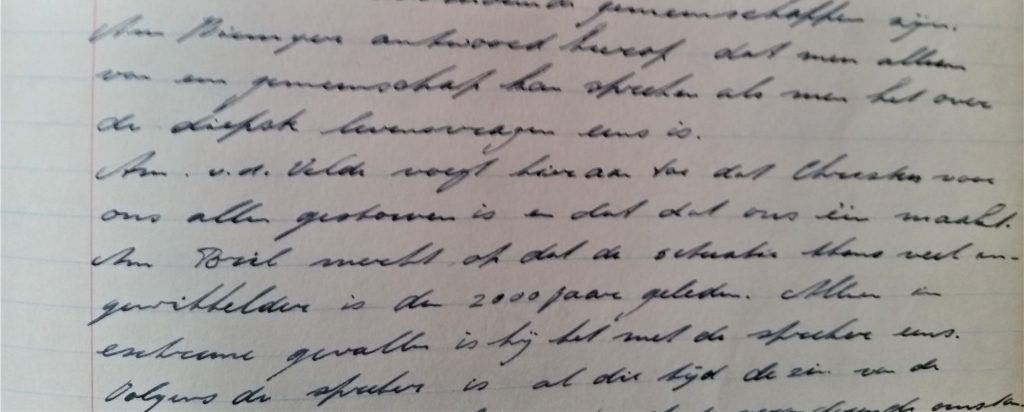 gemeenschappen zijn.
Am antwoord hierop dat men alleen
van een gemeenschap kan spreken als men het over
de diepste levensvragen eens is.
Am. v.d. Velde voegt hieraan toe dat Christus voor
ons allen gestorven is en dat dat ons één maakt.
Am Briel merkt op dat de situatie thans veel in-
gewikkelder is dan 2000 jaar geleden. Alleen in
extreme gevallen is hij het met de spreker eens.
Volgens de spreker is al die tijd de zin van de